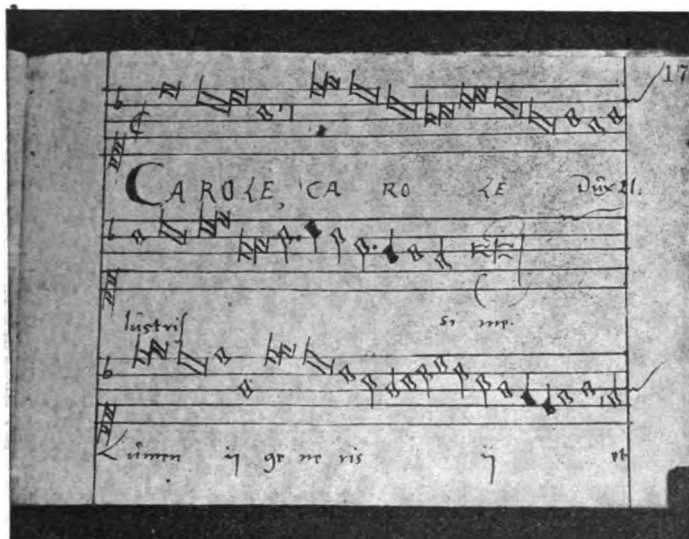 17
CAROLE, CA RO LE Dux Il.
lustris si me.
Lumen ij ge ne ris ij et